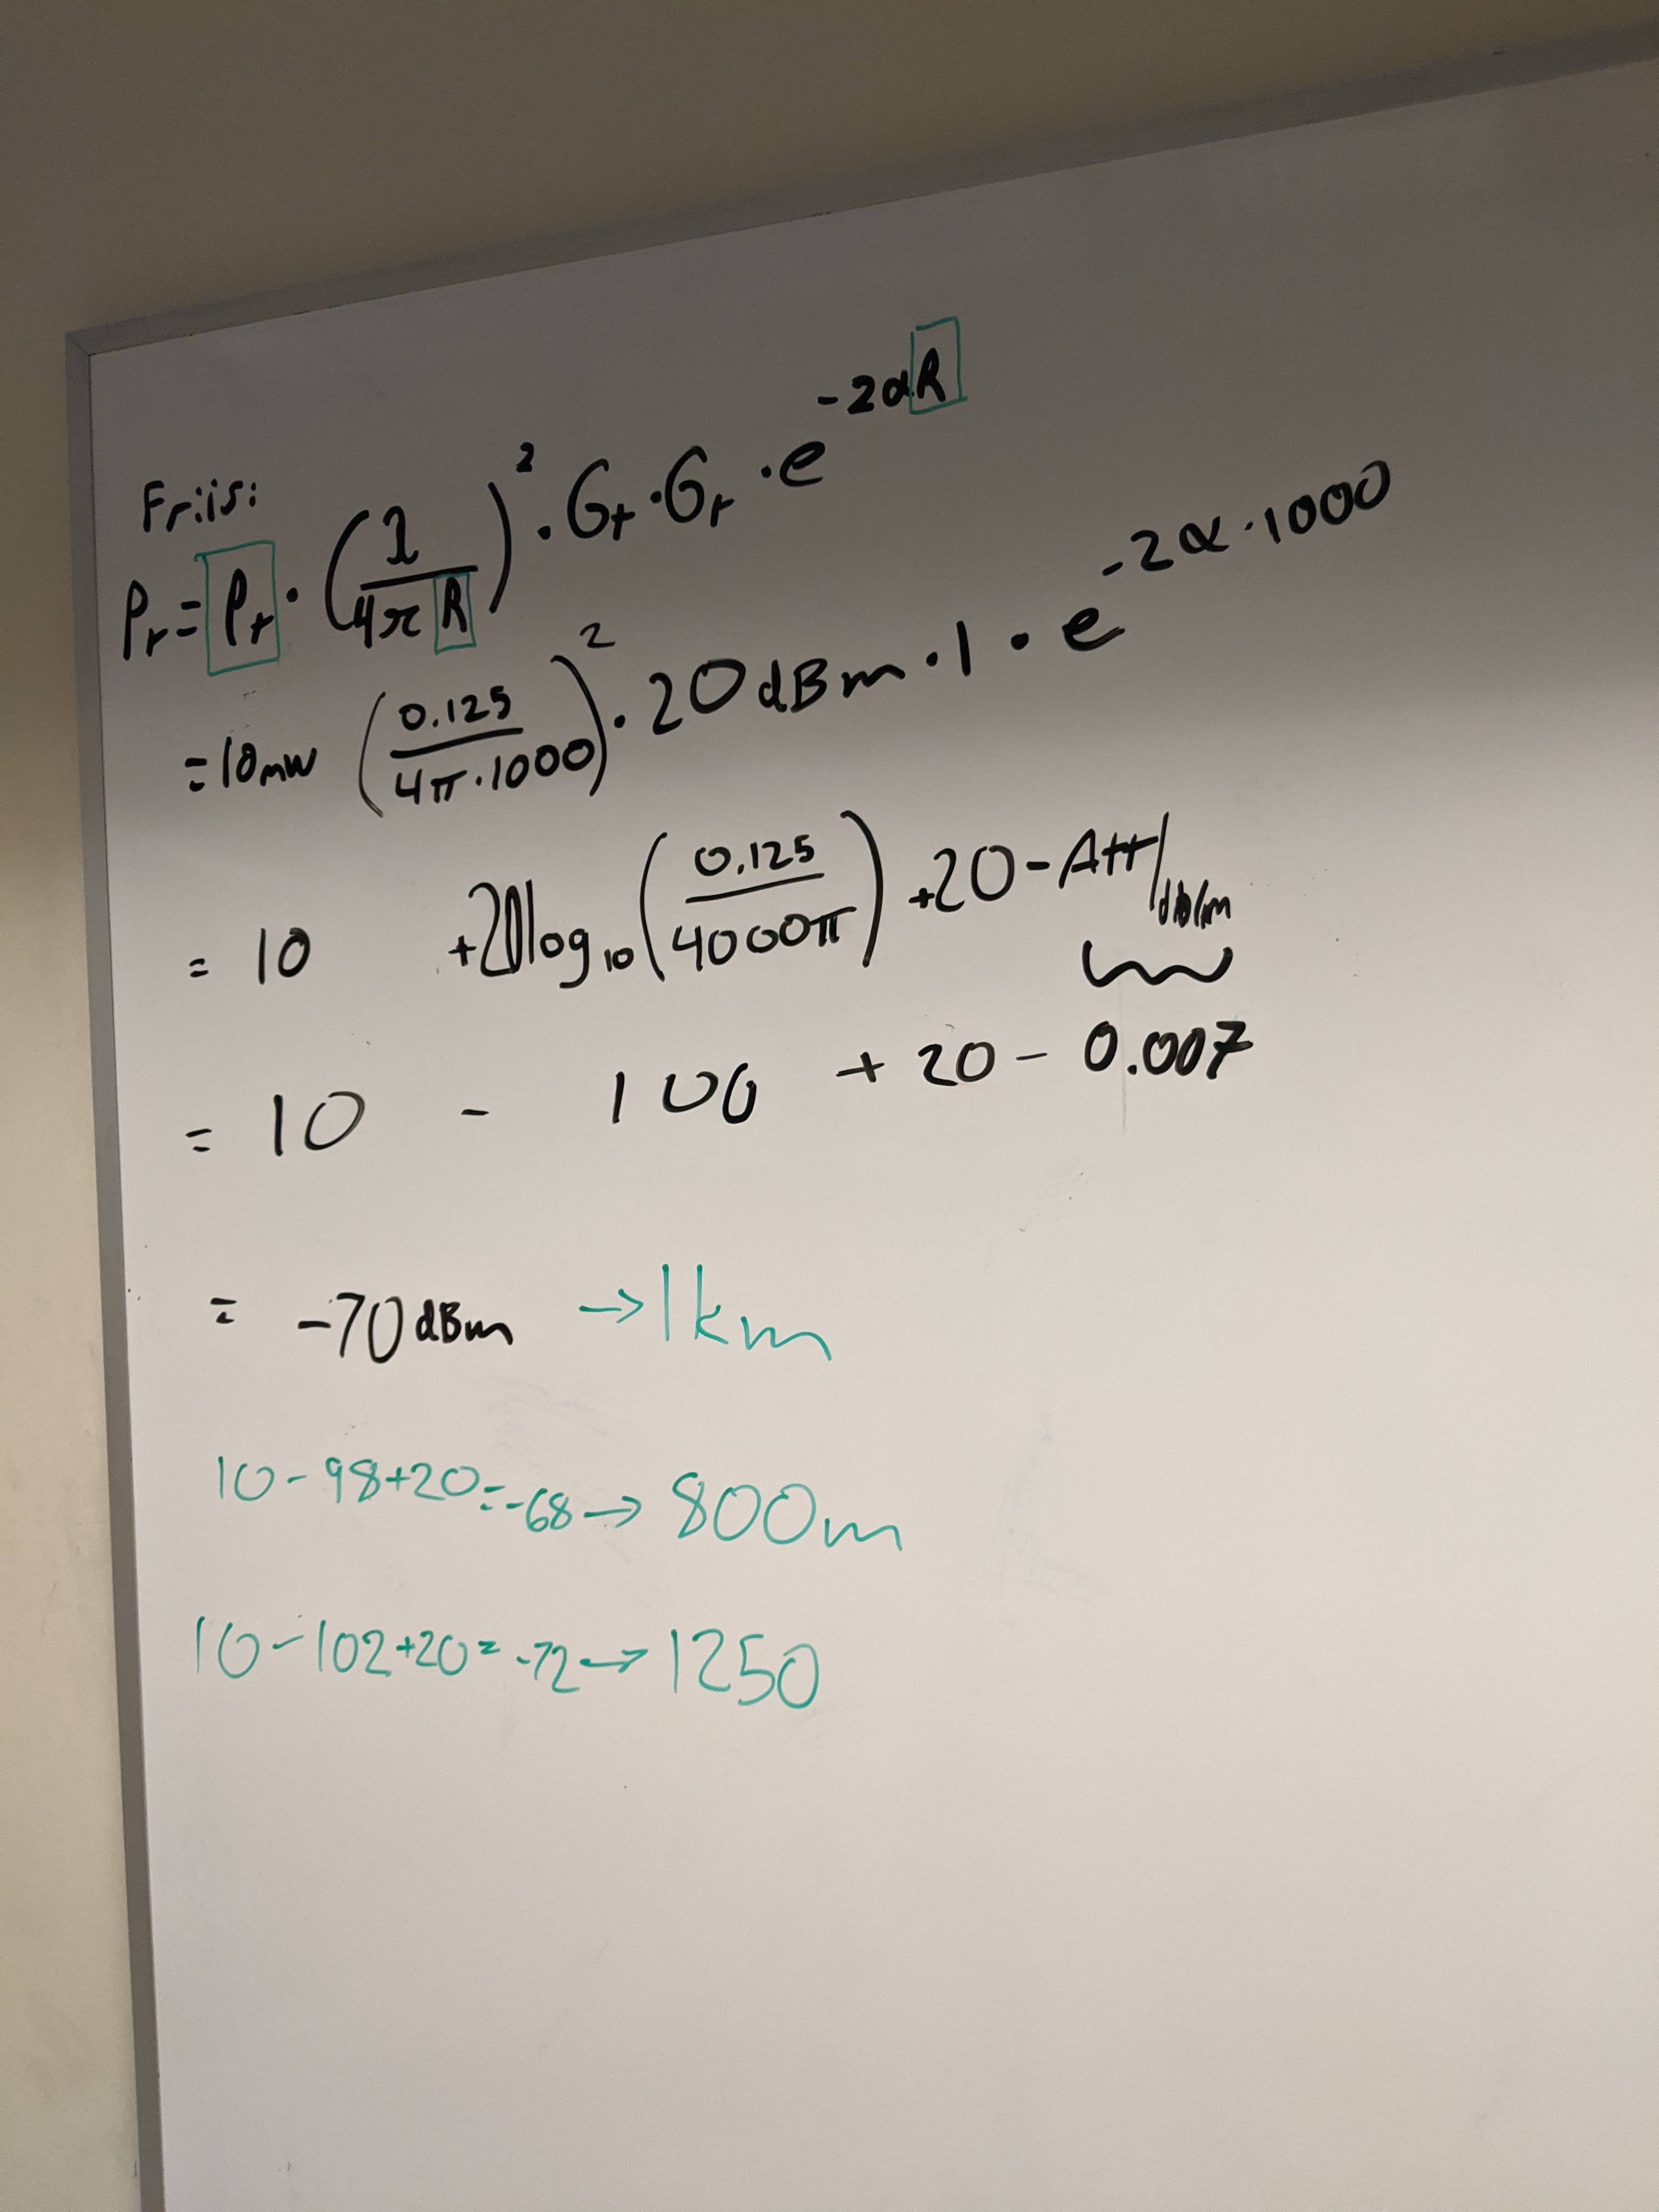 Friis:
Pr = Pt · (λ / 4πR)² · Gt · Gr · e^-2αR
= 10mW (0.125 / 4π·1000)² · 20dBm · 1 · e^-2α·1000
= 10 +20log₁₀(0.125 / 4000π) +20 - Att/dB/m
= 10 - 100 + 20 - 0.007
= -70dBm → 1km
10-98+20=-68 → 800m
10-102+20=-72 → 1250